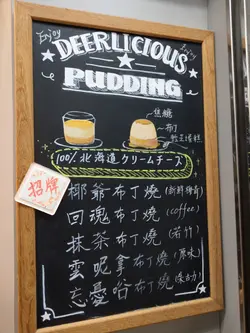 Enjoy
DEERLICIOUS
PUDDING
焦糖
布丁
100% 北海道クリームチーズ
招牌
椰爺布丁燒
回魂布丁燒 (coffee)
抹茶布丁燒 (若竹)
雲呢拿布丁燒 (原味)
忘憂谷布丁燒